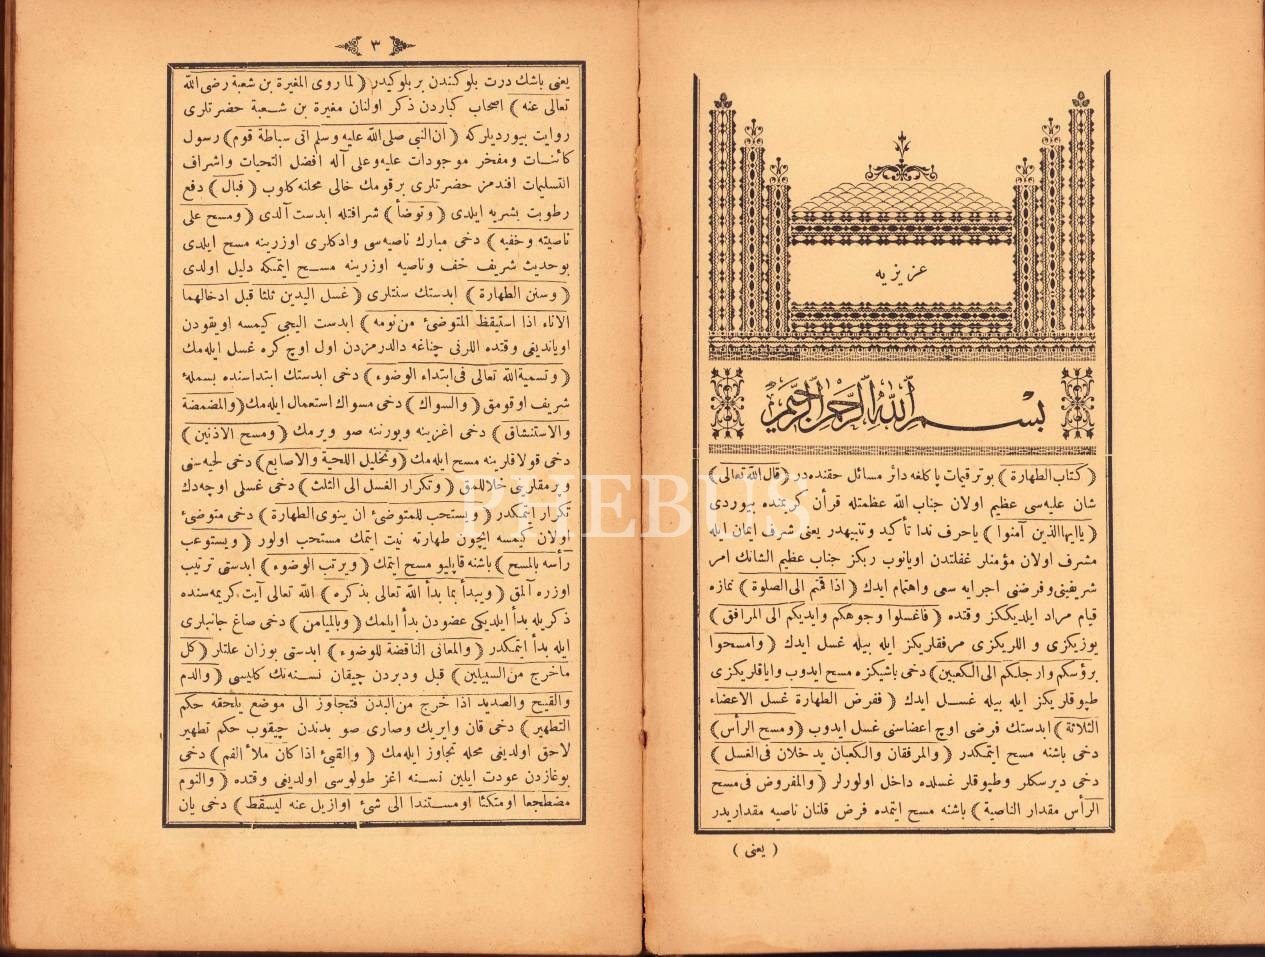 عزيزيه
بسم الله الرحمن الرحيم
﴿ كتاب الطهارة ﴾ بو ترقيمات ياكلغه دائر مسائل حقنده در ﴿ قال الله تعالى ﴾
شان عليه سى عظيم اولان جناب الله عظمتله قرأن كريمنده بيوردى
﴿ ياايها الذين آمنوا ﴾ ياحرف ندا تأكيد وتنبيهدر يعنى شرف ايمان ايله
مشرف اولان مؤمنلر غفلتدن اويانوب ربكز جناب عظيم الشانك امر
شريفنى وفرضنى اجرايه سعى واهتمام ايدك ﴿ اذا قمتم الى الصلوة ﴾ نمازه
قيام مراد ايلديككز وقتده ﴿ فاغسلوا وجوهكم وايديكم الى المرافق ﴾
يوزيكزى و اللريكزى مرفقلريكز ايله بيله غسل ايدك ﴿ وامسحوا
برؤسكم وارجلكم الى الكعبين ﴾ دخى باشيكزه مسح ايدوب واياقلريكزى
طپوقلريكز ايله بيله غسل ايدك ﴿ ففرض الطهارة غسل الاعضاء
الثلاثة ﴾ ابدستك فرضى اوچ اعضاسنى غسل ايدوب ﴿ ومسح الرأس ﴾
دخى باشنه مسح ايتمكدر ﴿ والمرفقان والكعبان يدخلان فى الغسل ﴾
دخى ديرسكلر وطپوقلر غسلده داخل اولورلر ﴿ والمفروض فى مسح
الرأس مقدار الناصية ﴾ باشنه مسح ايتمده فرض قلنان ناصيه مقداريدر
( يعنى )
٣
يعنى باشك درت بلوكندن بر بلوكيدر ﴿ لما روى المغيرة بن شعبة رضى الله
تعالى عنه ﴾ اصحاب كباردن ذكر اولنان مغيرة بن شعبة حضرتلرى
روايت بيورديلركه ﴿ ان النبى صلى الله عليه وسلم اتى سباطة قوم ﴾ رسول
كائنات ومفخر موجودات عليه وعلى آله افضل التحيات واشراف
التسليمات افندمز حضرتلرى بر قومك خالى محلنه كلوب ﴿ فبال ﴾ دفع
رطوبت بشريه ايلدى ﴿ وتوضأ ﴾ شرافتله ابدست آلدى ﴿ ومسح على
ناصيته وخفيه ﴾ دخى مبارك ناصيه سى وادكلرى اوزرينه مسح ايلدى
بوحديث شريف خف وناصيه اوزرينه مسح ايتمكه دليل اولدى
﴿ وسنن الطهارة ﴾ ابدستك سنتلرى ﴿ غسل اليدين ثلثا قبل ادخالهما
الاناء اذا استيقظ المتوضئ من نومه ﴾ ابدست اليجى كيمسه اويقودن
اوياندیغى وقتده اللرنى چناغه دالدرمزدن اول اوچ كره غسل ايله مك
﴿ وتسمية الله تعالى فى ابتداء الوضوء ﴾ دخى ابدستك ابتداسنده بسملۀ
شريف اوقومق ﴿ والسواك ﴾ دخى مسواك استعمال ايله مك ﴿ والمضمضة
والاستنشاق ﴾ دخى اغزينه وبورننه صو ويرمك ﴿ ومسح الاذنين ﴾
دخى قولاقلرينه مسح ايله مك ﴿ وتخليل اللحية والاصابع ﴾ دخى لحيه سنى
وپرمقلرينى خلاللمق ﴿ وتكرار الغسل الى الثلث ﴾ دخى غسلى اوچه دك
تكرار ايتمكدر ﴿ ويستحب للمتوضئ ان ينوى الطهارة ﴾ دخى متوضئ
اولان كيمسه ايچون طهارته نيت ايتمك مستحب اولور ﴿ ويستوعب
رأسه بالمسح ﴾ باشنه قاپليو مسح ايتمك ﴿ ويرتب الوضوء ﴾ ابدستى ترتيب
اوزره آلمق ﴿ ويبدأ بما بدأ الله تعالى بذكره ﴾ الله تعالى آيت كريمه سنده
ذكريله بدأ ايلديكى عضودن بدأ ايلمك ﴿ وبالميامن ﴾ دخى صاغ جانبلرى
ايله بدأ ايتمكدر ﴿ والمعانى الناقضة للوضوء ﴾ ابدستى بوزان علتلر ﴿ كل
ماخرج من السبيلين ﴾ قبل ودبردن چيقان نسنه نك كليسى ﴿ والدم
والقيح والصديد اذا خرج من البدن فتجاوز الى موضع يلحقه حكم
التطهير ﴾ دخى قان وايريك وصارى صو بدندن چيقوب حكم تطهير
لاحق اولديغى محله تجاوز ايله مك ﴿ والقيئ اذا كان ملأ الفم ﴾ دخى
بوغازدن عودت ايلين نسنه اغز طولوسى اولديغى وقتده ﴿ والنوم
مضطجعا اومتكئا اومستندا الى شئ اوازيل عنه ليسقط ﴾ دخى يان
PHEBUS